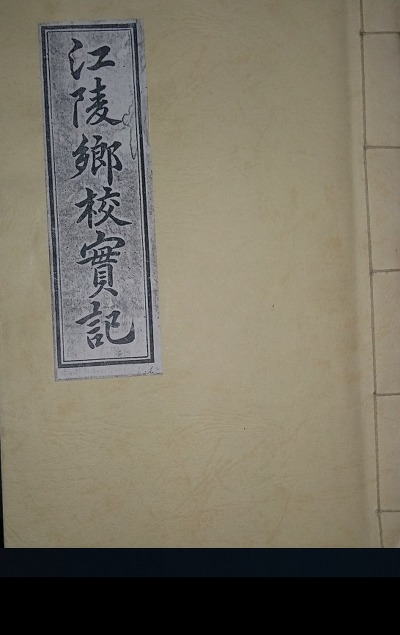 江陵鄕校實記